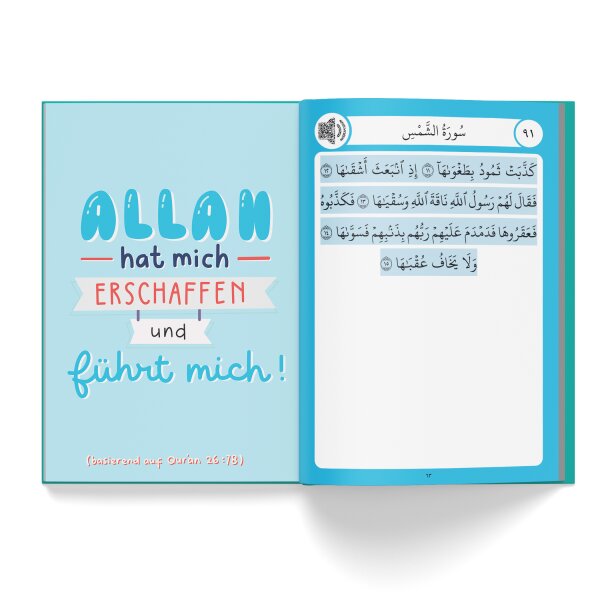 ALLAH
hat mich
ERSCHAFFEN
und
führt mich!
(basierend auf Qur'an 26:78)
سُورَةُ الشَّمْسِ
٩١
كَذَّبَتْ ثَمُودُ بِطَغْوَىٰهَآ ١١ إِذِ ٱنۢبَعَثَ أَشْقَىٰهَا ١٢
فَقَالَ لَهُمْ رَسُولُ ٱللَّهِ نَاقَةَ ٱللَّهِ وَسُقْيَـٰهَا ١٣ فَكَذَّبُوهُ
فَعَقَرُوهَا فَدَمْدَمَ عَلَيْهِمْ رَبُّهُم بِذَنۢبِهِمْ فَسَوَّىٰهَا ١٤
وَلَا يَخَافُ عُقْبَـٰهَا ١٥